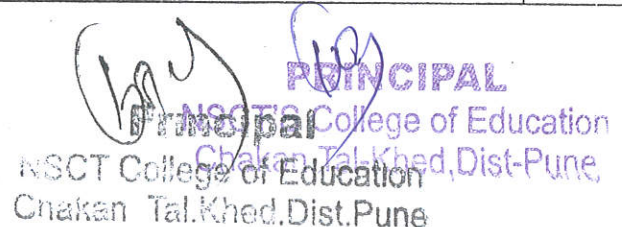 PRINCIPAL
NSCT'S College of Education
Chakan Tal-Khed,Dist-Pune
Principal
NSCT College of Education
Chakan Tal.Khed.Dist.Pune